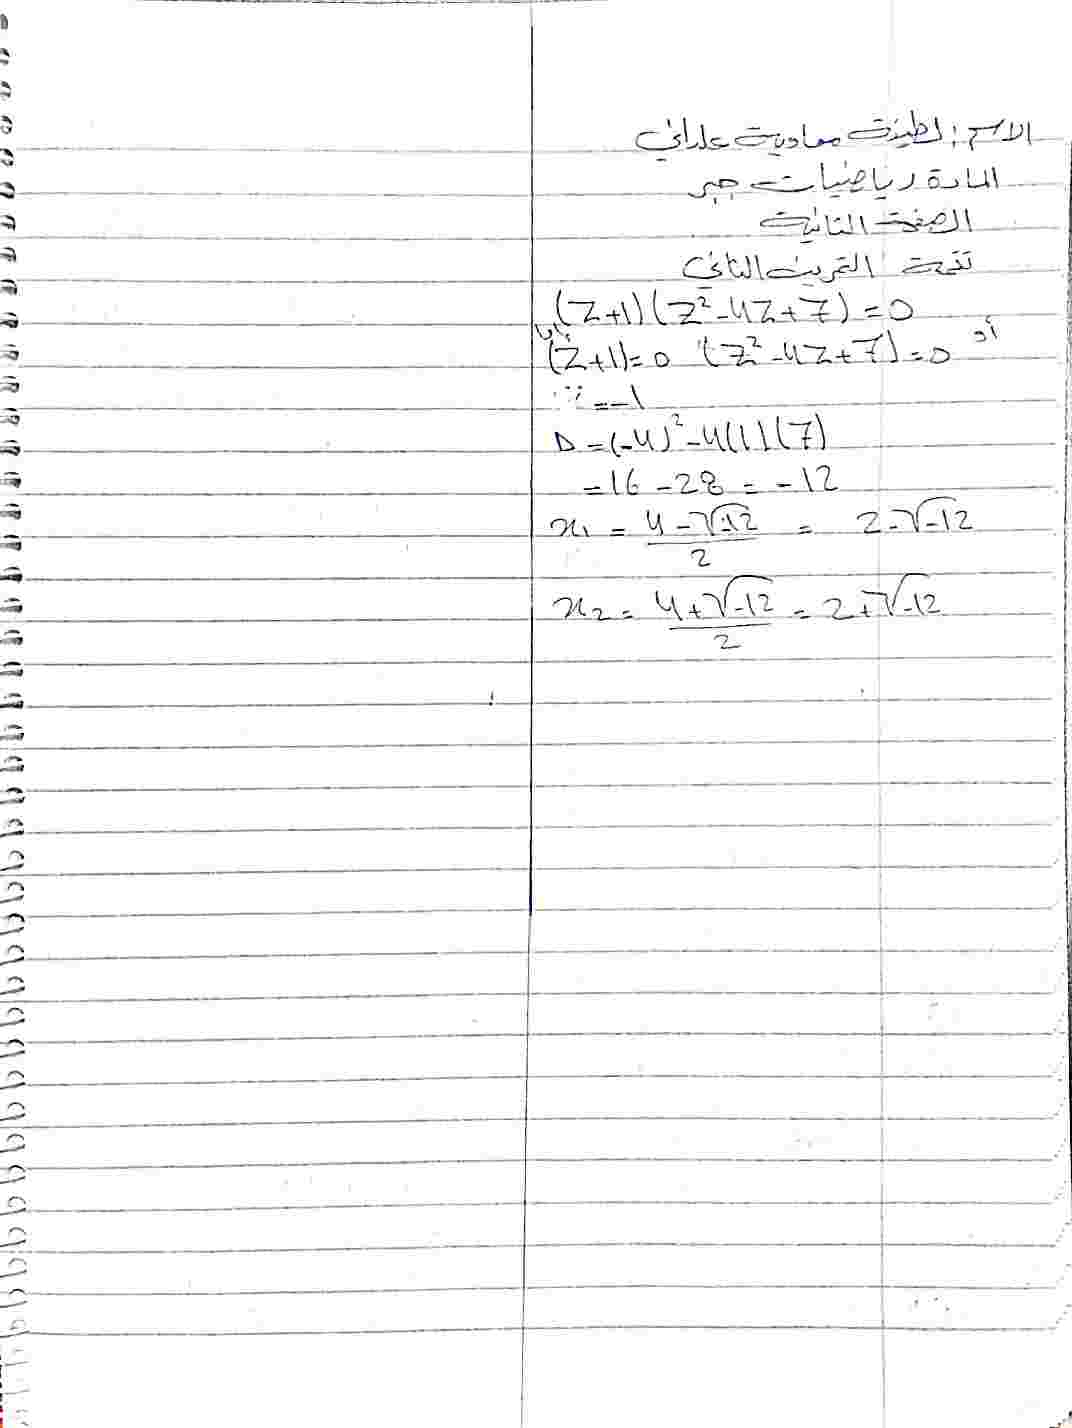 الاسم: لطيفة معاوية علداني
المادة رياضيات جبر
الصفحة الثانية
تتمة التمرين الثاني
(Z+1)(Z²-4Z+7)=0
إما (Z+1)=0 أو (Z²-4Z+7)=0
Z=-1
Δ=(-4)²-4(1)(7)
=16-28=-12
x₁ = (4-√-12)/2 = 2-√-12
x₂ = (4+√-12)/2 = 2+√-12